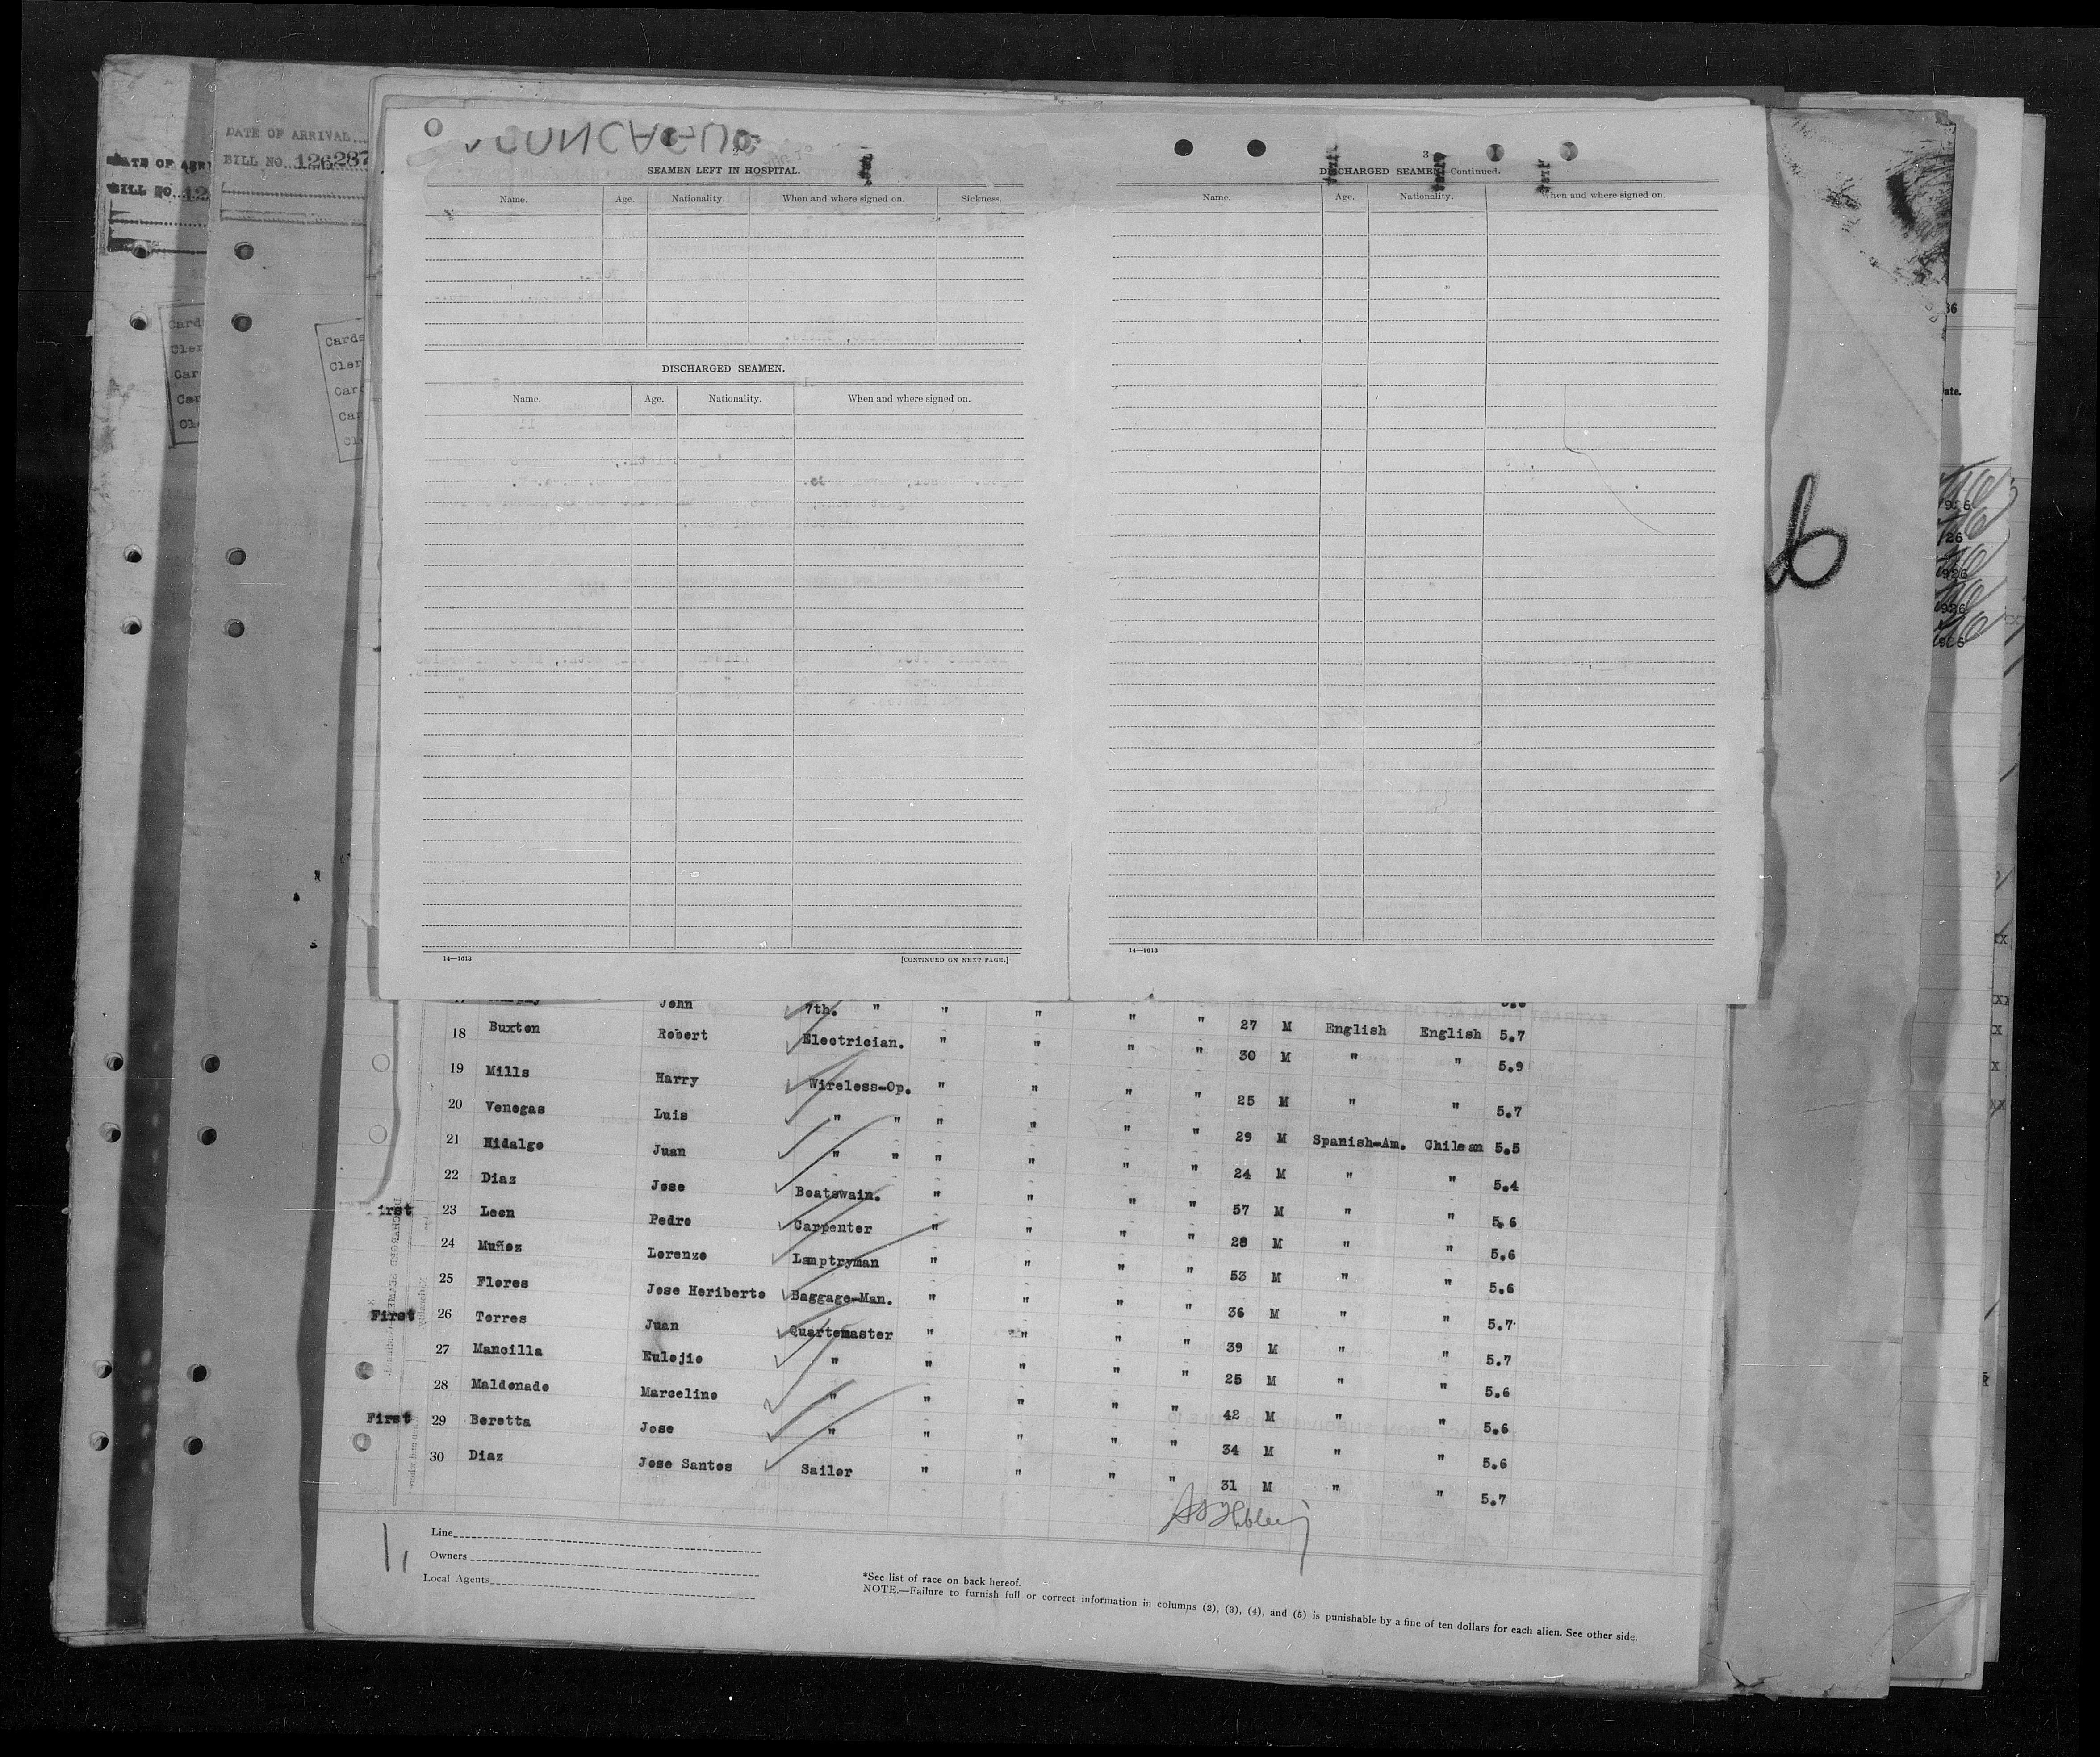 DATE OF ARRIVAL
BILL NO. 126287
2
SEAMEN LEFT IN HOSPITAL.
Name. Age. Nationality. When and where signed on. Sickness.
DISCHARGED SEAMEN.
Name. Age. Nationality. When and where signed on.
14—1613 [CONTINUED ON NEXT PAGE.]
3
DISCHARGED SEAMEN—Continued.
Name. Age. Nationality. When and where signed on.
14—1613
17 Murphy John 7th. " " " " " 27 M English English 5.7
18 Buxton Robert Electrician. " " " " 30 M " " 5.9
19 Mills Harry Wireless-Op. " " " " 25 M " " 5.7
20 Venegas Luis " " " " " " 29 M Spanish-Am. Chilean 5.5
21 Hidalgo Juan " " " " " " 24 M " " 5.4
22 Diaz Jose Boatswain. " " " " 57 M " " 5.6
First 23 Leon Pedro Carpenter " " " " 28 M " " 5.6
24 Muñoz Lorenzo Lamptryman " " " " 53 M " " 5.6
25 Flores Jose Heriberto Baggage-Man. " " " " 36 M " " 5.7
First 26 Torres Juan Quartemaster " " " " 39 M " " 5.7
27 Mancilla Eulojio " " " " " 25 M " " 5.6
28 Maldonado Marcelino " " " " " 42 M " " 5.6
First 29 Beretta Jose " " " " " 34 M " " 5.6
30 Diaz Jose Santos Sailor " " " " 31 M " " 5.7
Line
Owners
Local Agents
*See list of race on back hereof.
NOTE.—Failure to furnish full or correct information in columns (2), (3), (4), and (5) is punishable by a fine of ten dollars for each alien. See other side.